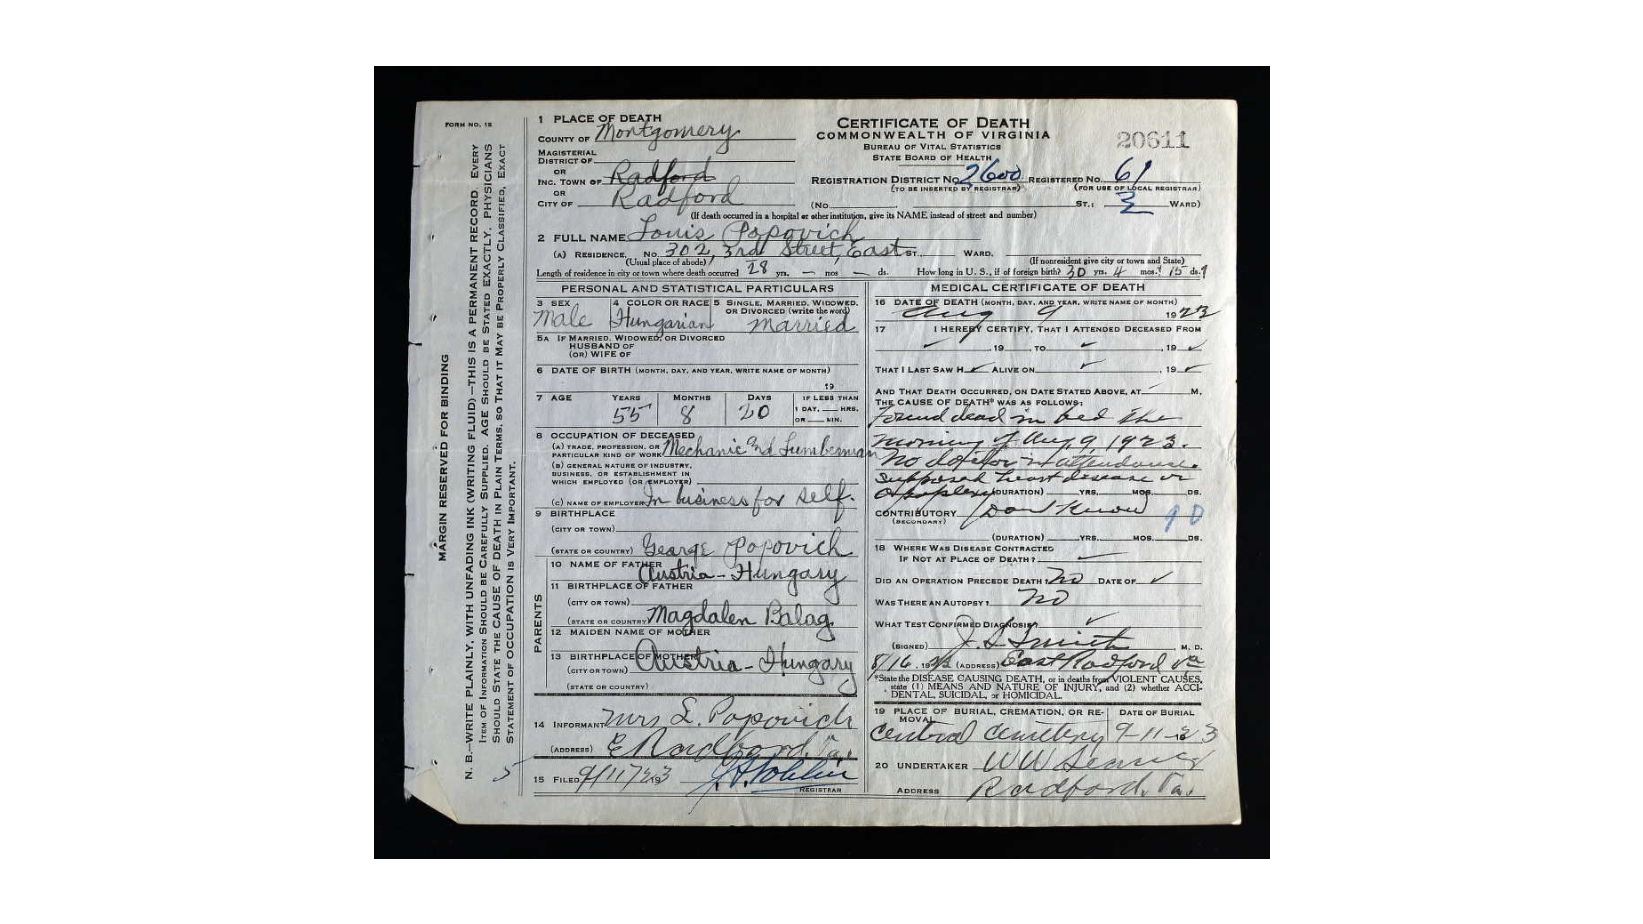 FORM NO. 12
MARGIN RESERVED FOR BINDING
N. B.—WRITE PLAINLY, WITH UNFADING INK (WRITING FLUID)—THIS IS A PERMANENT RECORD. EVERY
ITEM OF INFORMATION SHOULD BE CAREFULLY SUPPLIED. AGE SHOULD BE STATED EXACTLY. PHYSICIANS
SHOULD STATE THE CAUSE OF DEATH IN PLAIN TERMS, SO THAT IT MAY BE PROPERLY CLASSIFIED. EXACT
STATEMENT OF OCCUPATION IS VERY IMPORTANT.
1 PLACE OF DEATH
COUNTY OF Montgomery
MAGISTERIAL
DISTRICT OF
OR
INC. TOWN OF Radford
OR
CITY OF Radford
CERTIFICATE OF DEATH
COMMONWEALTH OF VIRGINIA
BUREAU OF VITAL STATISTICS
STATE BOARD OF HEALTH
20611
REGISTRATION DISTRICT NO. 2600 REGISTERED NO. 61
(TO BE INSERTED BY REGISTRAR) (FOR USE OF LOCAL REGISTRAR)
(No. ST.; 3 WARD)
(If death occurred in a hospital or other institution, give its NAME instead of street and number)
2 FULL NAME Louis Popovich
(A) RESIDENCE. No. 302, 3rd Street, East ST. WARD.
(Usual place of abode) (If nonresident give city or town and State)
Length of residence in city or town where death occurred 28 yrs. — mos — ds. How long in U. S., if of foreign birth? 30 yrs. 4 mos. 15 ds.?
PERSONAL AND STATISTICAL PARTICULARS
3 SEX 4 COLOR OR RACE 5 SINGLE, MARRIED, WIDOWED,
OR DIVORCED (write the word)
Male Hungarian married
5A IF MARRIED, WIDOWED, OR DIVORCED
HUSBAND OF
(OR) WIFE OF
6 DATE OF BIRTH (MONTH, DAY, AND YEAR, WRITE NAME OF MONTH)
19
7 AGE YEARS MONTHS DAYS IF LESS THAN
55 8 20 1 DAY, HRS.
OR MIN.
8 OCCUPATION OF DECEASED
(A) TRADE, PROFESSION, OR
PARTICULAR KIND OF WORK Mechanic nd Lumberman
(B) GENERAL NATURE OF INDUSTRY,
BUSINESS, OR ESTABLISHMENT IN
WHICH EMPLOYED (OR EMPLOYER)
(C) NAME OF EMPLOYER In business for self.
9 BIRTHPLACE
(CITY OR TOWN)
(STATE OR COUNTRY) George Popovich
PARENTS
10 NAME OF FATHER Austria-Hungary
11 BIRTHPLACE OF FATHER
(CITY OR TOWN)
(STATE OR COUNTRY) Magdalen Balag
12 MAIDEN NAME OF MOTHER
13 BIRTHPLACE OF MOTHER Austria-Hungary
(CITY OR TOWN)
(STATE OR COUNTRY)
14 INFORMANT Mrs L. Popovich
(ADDRESS) E Radford, Va.
15 FILED 9/11/23 193
REGISTRAR
MEDICAL CERTIFICATE OF DEATH
16 DATE OF DEATH (MONTH, DAY, AND YEAR, WRITE NAME OF MONTH)
Aug 9 1923
17 I HEREBY CERTIFY, THAT I ATTENDED DECEASED FROM
, 19 , TO , 19
THAT I LAST SAW H ALIVE ON , 19
AND THAT DEATH OCCURRED, ON DATE STATED ABOVE, AT M.
THE CAUSE OF DEATH* WAS AS FOLLOWS:
Found dead in bed the
morning of Aug 9, 1923.
No doctor in attendance.
Supposed heart disease or
Apoplexy (DURATION) YRS. MOS. DS.
CONTRIBUTORY Don't Know 90
(SECONDARY)
(DURATION) YRS. MOS. DS.
18 WHERE WAS DISEASE CONTRACTED
IF NOT AT PLACE OF DEATH?
DID AN OPERATION PRECEDE DEATH? No DATE OF
WAS THERE AN AUTOPSY? No
WHAT TEST CONFIRMED DIAGNOSIS?
(SIGNED) M. D.
8/16, 19 (ADDRESS) East Radford Va
*State the DISEASE CAUSING DEATH, or in deaths from VIOLENT CAUSES,
state (1) MEANS AND NATURE OF INJURY, and (2) whether ACCI-
DENTAL, SUICIDAL, or HOMICIDAL.
19 PLACE OF BURIAL, CREMATION, OR RE- DATE OF BURIAL
MOVAL
Central Cemetery 9-11-23
20 UNDERTAKER WW
ADDRESS Radford, Va.